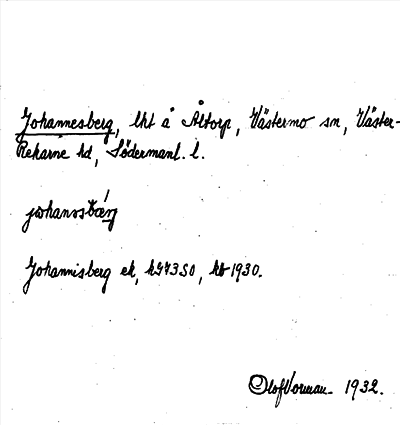 Johannesberg, lht å Åltorp, Västermo sn, Väster-
Rekarne hd, Södermanl. l.
johannsbärj
Johannisberg ek, hkv350, kb 1930.
Olof Norman 1932.